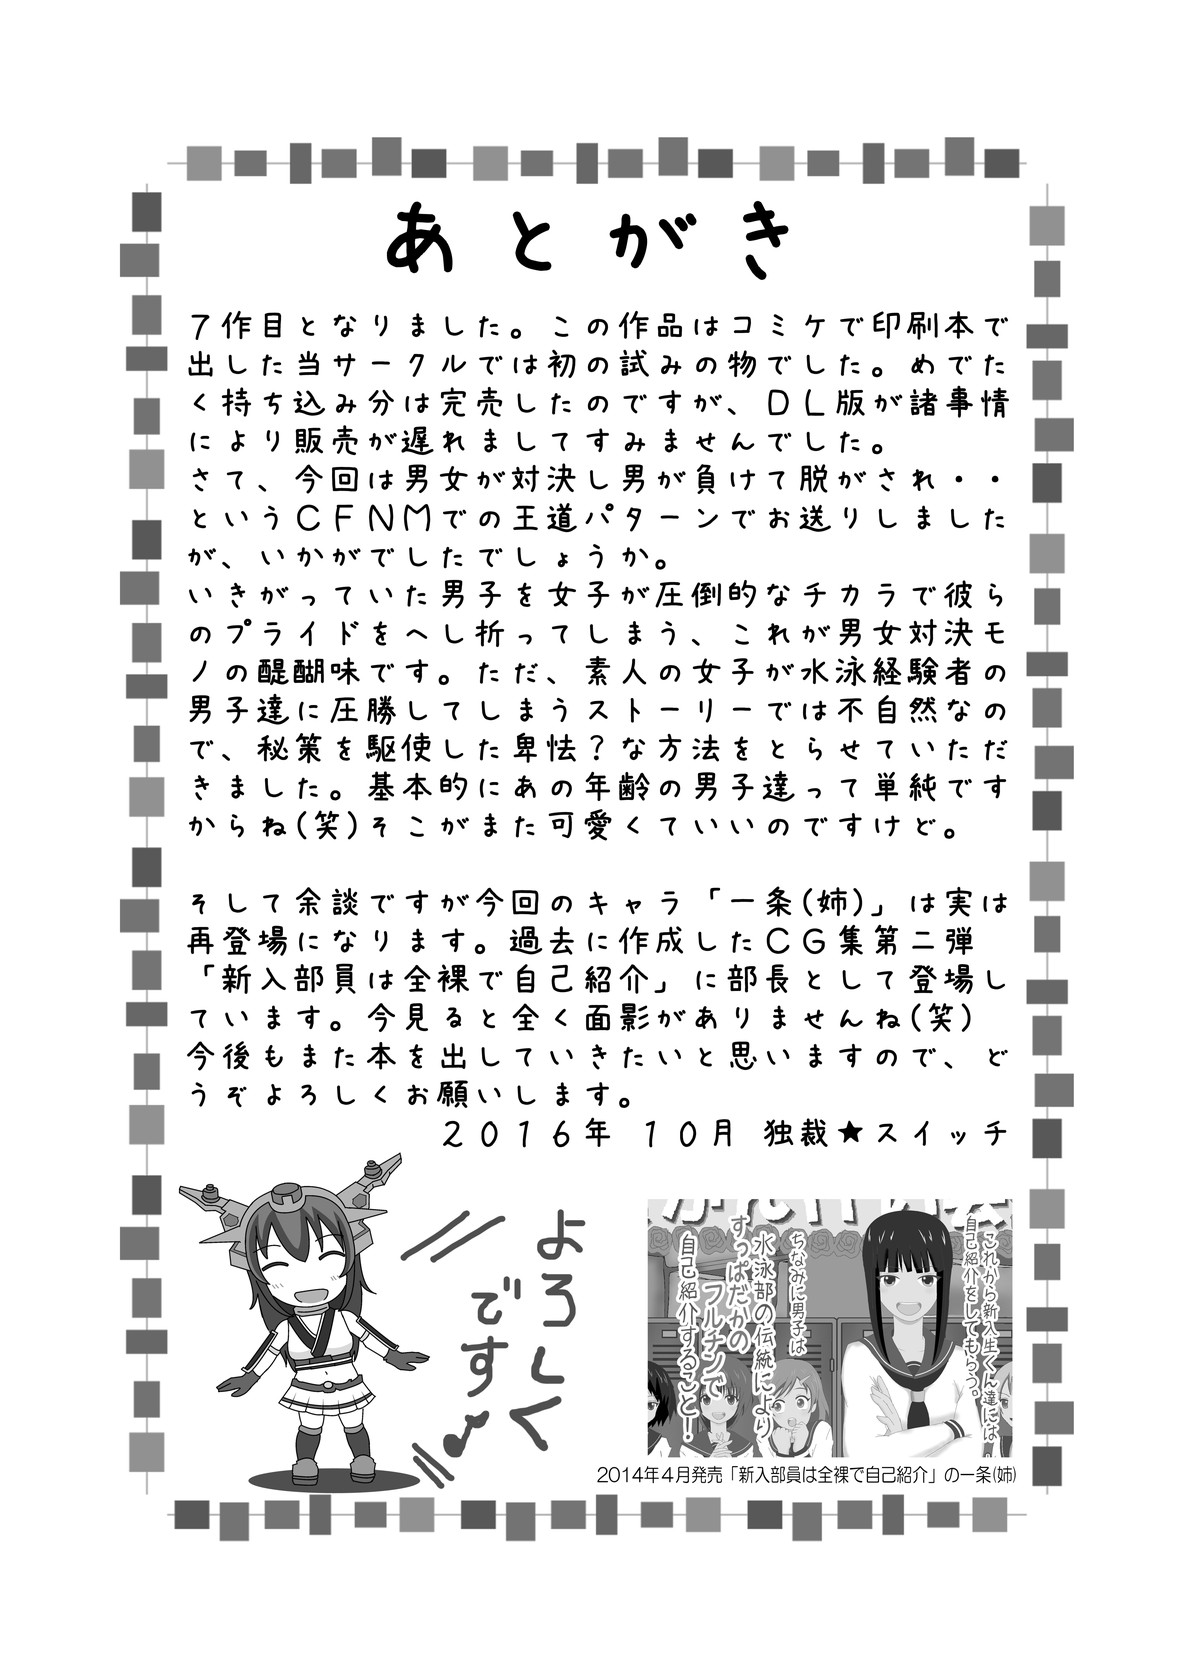 あとがき
７作目となりました。この作品はコミケで印刷本で
出した当サークルでは初の試みの物でした。めでた
く持ち込み分は完売したのですが、ＤＬ版が諸事情
により販売が遅れましてすみませんでした。
さて、今回は男女が対決し男が負けて脱がされ・・
というＣＦＮＭでの王道パターンでお送りしました
が、いかがでしたでしょうか。
いきがっていた男子を女子が圧倒的なチカラで彼ら
のプライドをへし折ってしまう、これが男女対決モ
ノの醍醐味です。ただ、素人の女子が水泳経験者の
男子達に圧勝してしまうストーリーでは不自然なの
で、秘策を駆使した卑怯？な方法をとらせていただ
きました。基本的にあの年齢の男子達って単純です
からね(笑)そこがまた可愛くていいのですけど。
そして余談ですが今回のキャラ「一条(姉)」は実は
再登場になります。過去に作成したＣＧ集第二弾
「新入部員は全裸で自己紹介」に部長として登場し
ています。今見ると全く面影がありませんね(笑)
今後もまた本を出していきたいと思いますので、ど
うぞよろしくお願いします。
２０１６年 １０月 独裁★スイッチ
よろしく
です♪
これから新入生くん達には
自己紹介をしてもらう。
ちなみに男子は
水泳部の伝統により
すっぱだかの
フルチンで
自己紹介すること！
2014年４月発売「新入部員は全裸で自己紹介」の一条(姉)